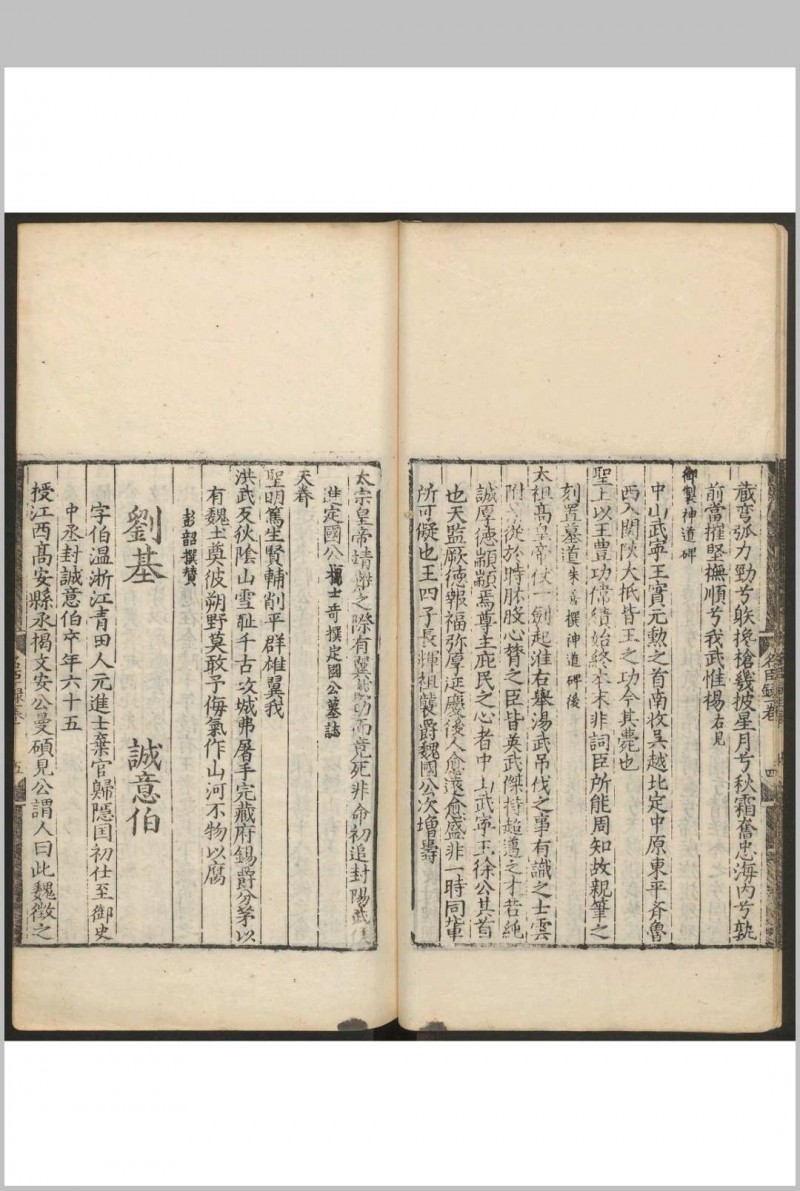 蕆弯弧力勁兮躱搀槍幾披星月兮秋霜奮忠海内兮孰
前當擢堅撫順兮我武惟楊右見
御製神道碑
中山武寧王實元勲之首南收吳越北定中原東平齊魯
西入関陝大抵皆王之功今其薨也
聖上以王豊功偉績始終本末非詞臣所能周知故親筆之
刻置墓道朱善撰神道碑後
太祖高皇帝仗一劍起淮右舉湯武吊伐之事有識之士雲
附從於時肱股心膂之臣皆英武傑特超邁之才若純
誠厚德顒顒焉尊主庇民之心者中山武寧王徐公其首
也天監厥德報福弥厚延慶後人愈遠愈盛非一時同軰
所可儗也王四子長輝祖襲爵魏國公次增壽
名臣録一卷
四
太宗皇帝靖難之際有翼戴功而竟死非命初追封陽武侯
進定國公楊士奇撰定國公墓誌
天眷
聖明篤生賢輔削平群雄翼我
洪武歼狄陰山雪耻千古攻城弗屠手完藏府錫爵分茅以
有魏土奠彼朔野莫敢予侮氣作山河不物以腐
彭韶撰賛
劉基 誠意伯
字伯温浙江青田人元進士棄官歸隱囯初仕至御史
中丞封誠意伯卒年六十五
授江西髙安縣丞揭文安公曼碩見公謂人曰此魏徵之
五